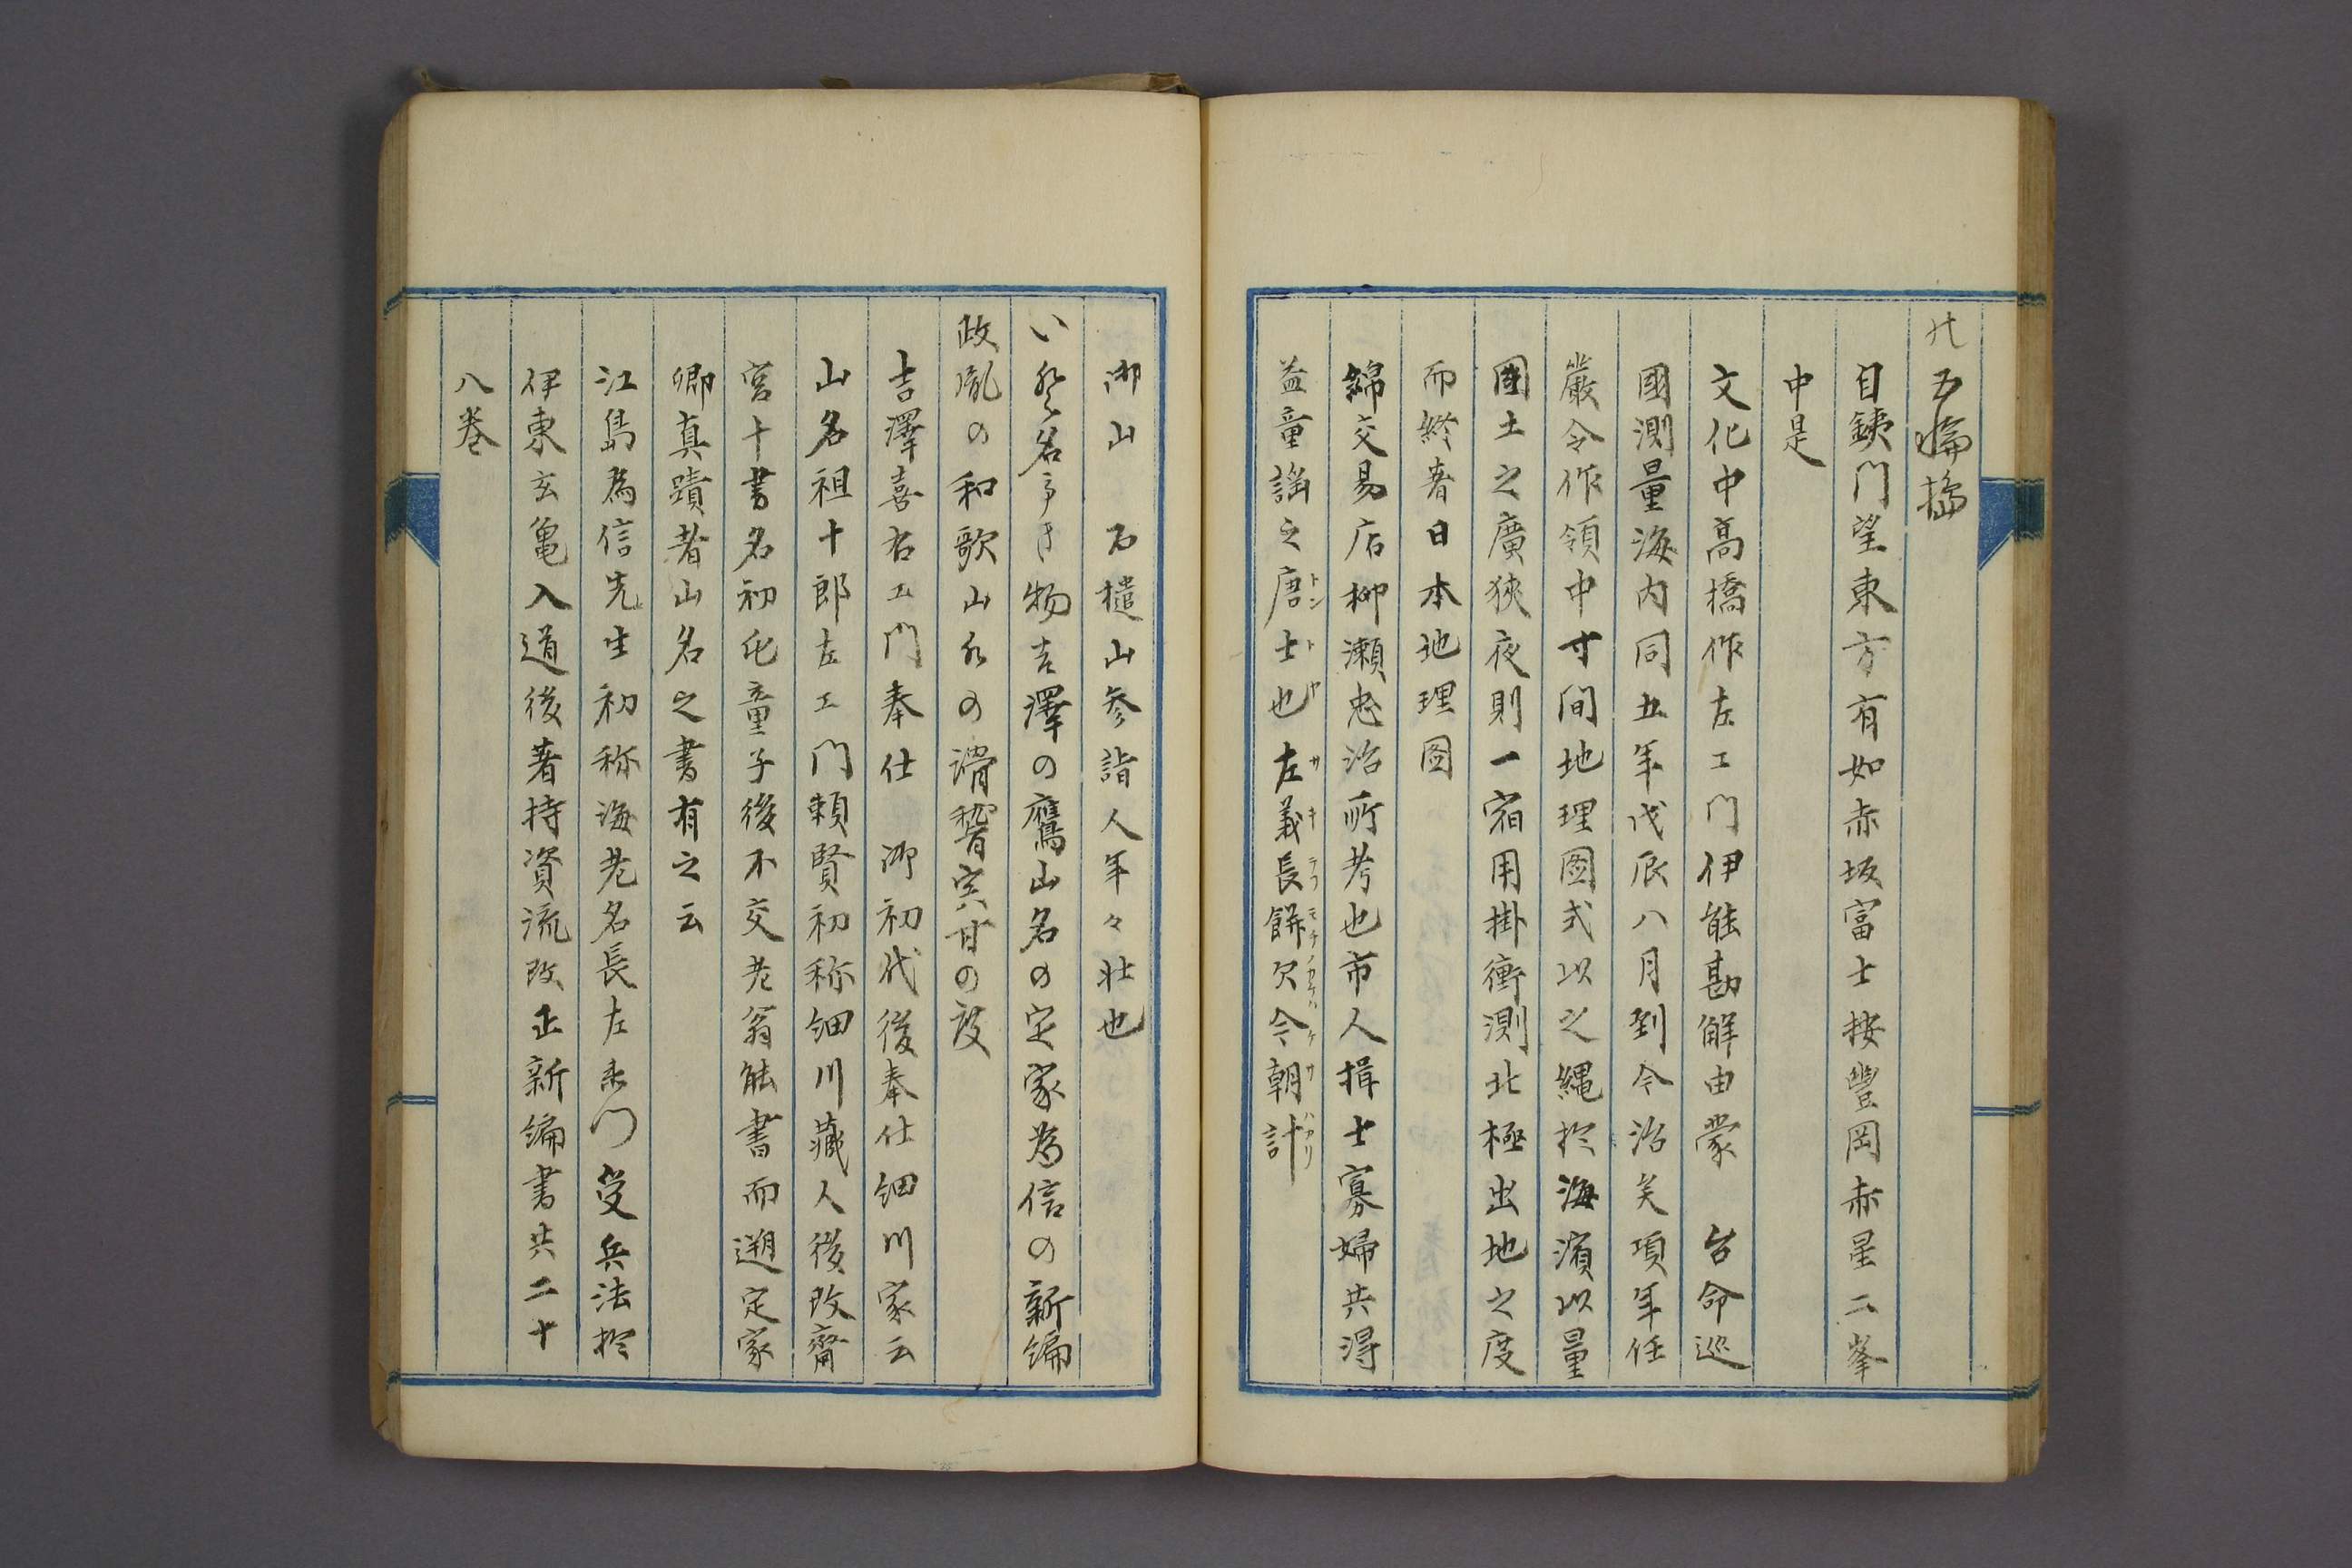 目鋏門望東方有如赤坂富士按豐岡赤星二峯
中是
文化中髙橋作左エ門伊能勘解由蒙　台命巡
國測量海内同五年戊辰八月到今治矣項年任
嚴令作領中寸間地理図式以之縄於海濱以量
國土之廣狹夜則一宿用掛衝測北極出地之度
而終著日本地理図
綿交易店柳瀬忠治所考也市人揖士寡婦共得
益童謡之唐士也左義長餅欠今朝計
トントヤサキテフモチノカケハケサハカリ
御山　石槌山参詣人年々壮也
物吉澤の鷹山名の定家為信の新編
政胤の和歌山水の滑稽
吉澤喜右エ門奉仕　御初代後奉仕細川家云
山名祖十郎左エ門頼賢初称細川藏人後改齋
宮十書名初化童子後不交老翁能書而遡定家
卿真蹟者山名之書有之云
江島為信先生初称海老名長左衛門受兵法於
伊東玄亀入道後著持資流改正新編書共二十
八巻